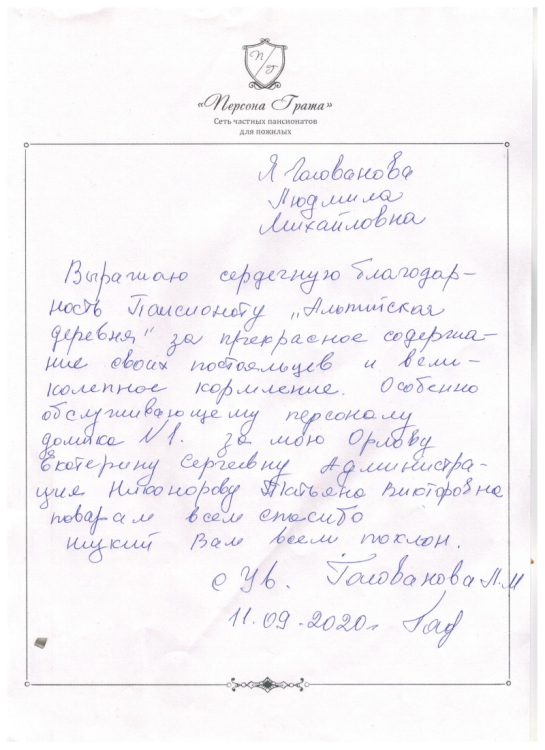 П Г
«Персона Грата»
Сеть частных пансионатов
для пожилых
Я Голованова
Людмила
Михайловна
Выражаю сердечную благодар-
ность Пансионату „Альпийская
деревня" за прекрасное содержа-
ние своих постояльцев и вели-
колепное кормление. Особенно
обслуживающему персоналу
домика N1. за мою Орлову
Екатерину Сергеевну Администра-
ция Никонорову Татьяна Викторовна
поварам всем спасибо
низкий Вам всем поклон.
с Ув. Голованова Л.М
11.09.2020г